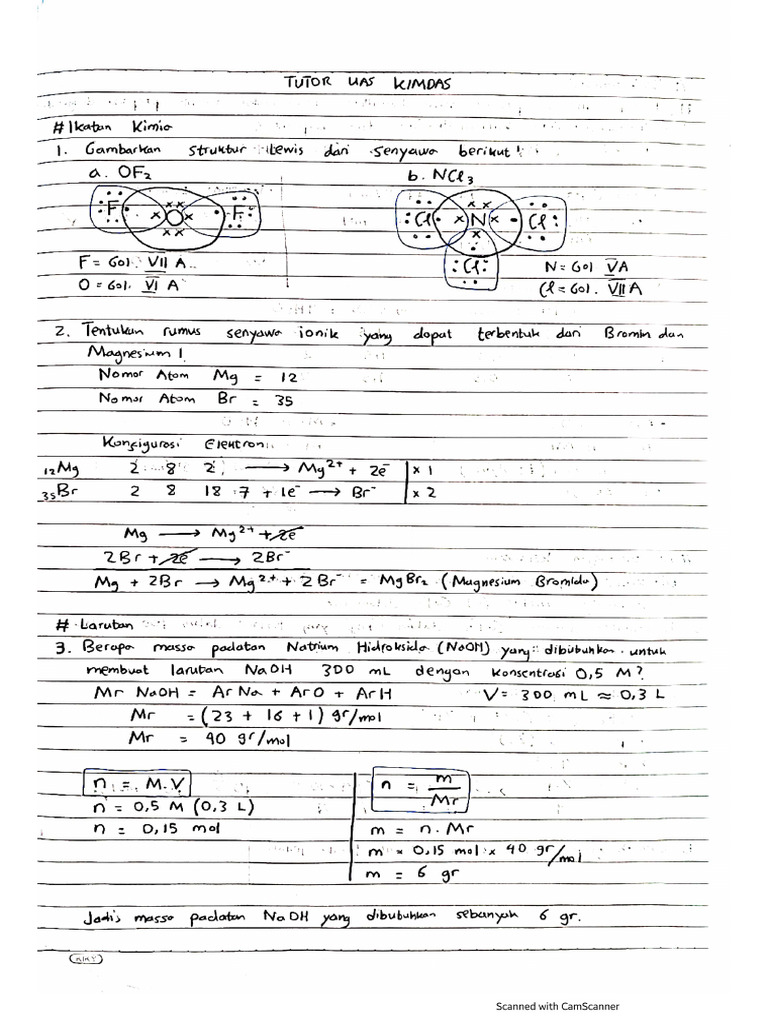 TUTOR UAS KIMDAS
# Ikatan Kimia
1. Gambarkan struktur lewis dari senyawa berikut!
a. OF₂ b. NCl₃
F O F Cl N Cl
Cl
F = Gol. VII A N = Gol VA
O = Gol. VI A Cl = Gol. VII A
2. Tentukan rumus senyawa ionik yang dapat terbentuk dari Bromin dan
Magnesium!
Nomor Atom Mg = 12
Nomor Atom Br = 35
Konfigurasi Elektron
₁₂Mg 2 8 2 → Mg²⁺ + 2e⁻ | x 1
₃₅Br 2 8 18 7 + 1e⁻ → Br⁻ | x 2
Mg → Mg²⁺ + 2e⁻
2Br + 2e⁻ → 2Br⁻
Mg + 2Br → Mg²⁺ + 2Br⁻ = MgBr₂ (Magnesium Bromida)
# Larutan
3. Berapa massa padatan Natrium Hidroksida (NaOH) yang dibubuhkan untuk
membuat larutan NaOH 300 mL dengan konsentrasi 0,5 M?
Mr NaOH = Ar Na + Ar O + Ar H V = 300 mL ≈ 0,3 L
Mr = (23 + 16 + 1) gr/mol
Mr = 40 gr/mol
n = M.V n = m/Mr
n = 0,5 M (0,3 L) m = n . Mr
n = 0,15 mol m = 0,15 mol x 40 gr/mol
m = 6 gr
Jadi, massa padatan NaOH yang dibubuhkan sebanyak 6 gr.
KIKY
Scanned with CamScanner